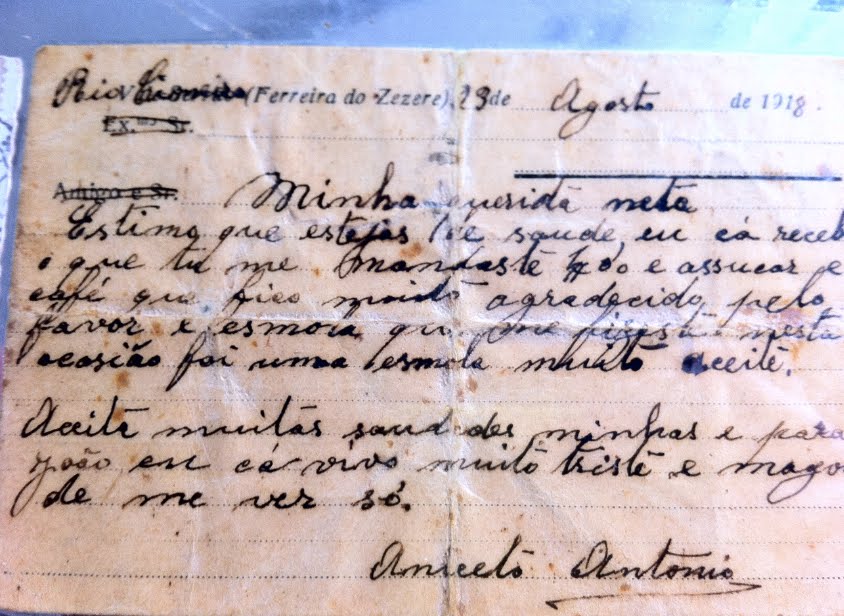 Rio (Ferreira do Zezere), 23 de Agosto de 1918.
Ex.mo Sr.
Amigo e Sr.
Minha querida neta
Estimo que estejas de saude, eu cá receb
o que tu me mandaste e assucar e
café que fico muito agradecido pelo
favor e esmola que me nesta
ocasião foi uma esmola muito aceite.
Aceita muitas saudades minhas e para
João eu cá vivo muito triste e mago
de me ver só.
Aniceto Antonio